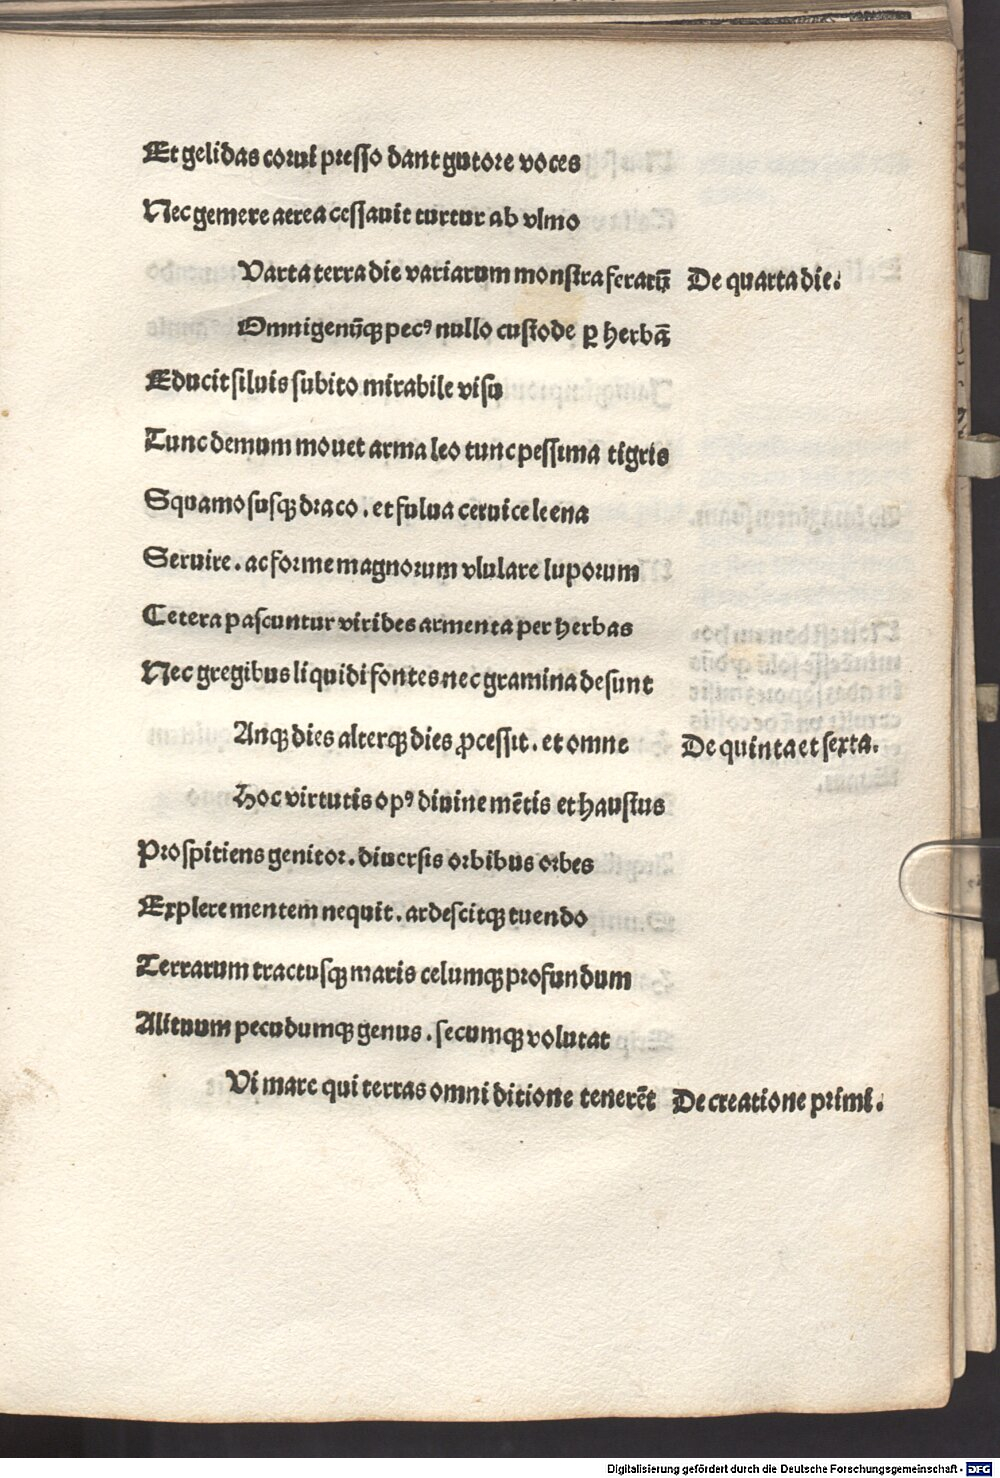 Et gelidas corui presso dant gutore voces
Nec gemere aerea cessauit turtur ab vlmo
Varta terra die variarum monstra feraꝝ̃ De quarta die.
Omnigenũqꝫ pecꝰ nullo custode ꝑ herbã
Educit siluis subito mirabile visu
Tunc demum mouet arma leo tunc pessima tigris
Squamosusqꝫ draco. et fulua ceruice leena
Seruire. ac forme magnorum vlulare luporum
Cetera pascuntur virides armenta per herbas
Nec gregibus liquidi fontes nec gramina desunt
Anqꝫ dies alterqꝫ dies ꝓcessit. et omne De quinta et sexta.
Hoc virtutis opꝰ diuine mẽtis et haustus
Prospitiens genitor. diuersis orbibus orbes
Explere mentem nequit. ardescitqꝫ tuendo
Terrarum tractusqꝫ maris celumqꝫ profundum
Alituum pecudumqꝫ genus. secumqꝫ volutat
Vi mare qui terras omni ditione tenerẽt De creatione primi.
Digitalisierung gefördert durch die Deutsche Forschungsgemeinschaft - DFG